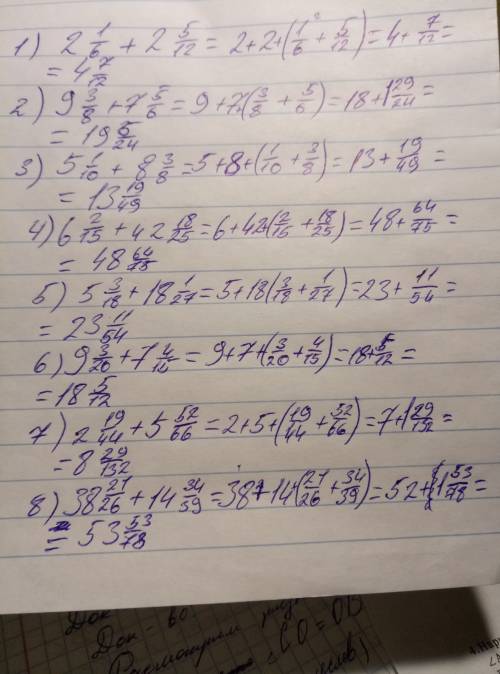 1) 2 1/6 + 2 5/12 = 2+2+(1/6 + 5/12) = 4+ 7/12 =
= 4 7/12
2) 9 3/8 + 7 5/6 = 9+7+(3/8 + 5/6) = 18 + 1 29/24 =
= 19 5/24
3) 5 1/10 + 8 3/8 = 5+8+(1/10 + 3/8) = 13 + 19/49 =
= 13 19/49
4) 6 2/15 + 42 18/25 = 6+42+(2/15 + 18/25) = 48 + 64/75 =
= 48 64/75
5) 5 3/18 + 18 1/27 = 5+18(3/18 + 1/27) = 23 + 11/54 =
= 23 11/54
6) 9 3/20 + 7 4/15 = 9+7+(3/20 + 4/15) = 18 + 5/12 =
= 18 5/12
7) 2 19/44 + 5 52/66 = 2+5+(19/44 + 52/66) = 7+1 29/132 =
= 8 29/132
8) 38 21/26 + 14 34/39 = 38+14(21/26 + 34/39) = 52+1 53/78 =
= 53 53/78
Док-
Док-во
Рассмотрим
CO = OD